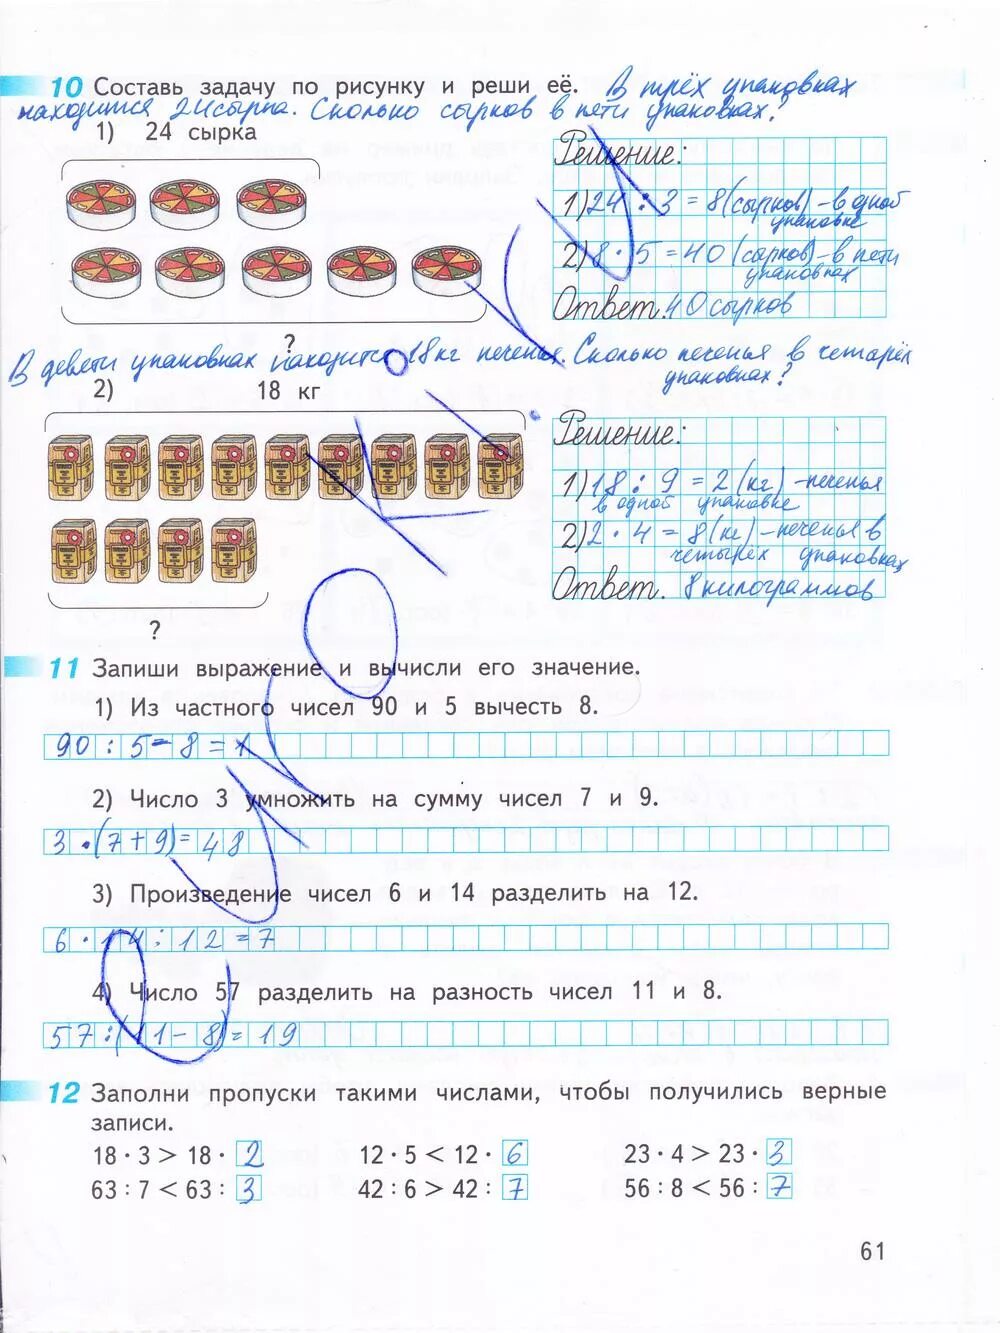 10 Составь задачу по рисунку и реши её. В трёх упаковках
находится 24 сырка. Сколько сырков в пяти упаковках?
1) 24 сырка
Решение:
1) 24 : 3 = 8 (сырков) - в одной
упаковке
2) 8 · 5 = 40 (сырков) - в пяти
упаковках
Ответ. 40 сырков
?
В девяти упаковках находится 18 кг печенья. Сколько печенья в четырёх
упаковках?
2) 18 кг
Решение:
1) 18 : 9 = 2 (кг) - печенья
в одной упаковке
2) 2 · 4 = 8 (кг) - печенья в
четырёх упаковках
Ответ. 8 килограммов
?
11 Запиши выражение и вычисли его значение.
1) Из частного чисел 90 и 5 вычесть 8.
90 : 5 - 8 = 1
2) Число 3 умножить на сумму чисел 7 и 9.
3 · (7 + 9) = 48
3) Произведение чисел 6 и 14 разделить на 12.
6 · 14 : 12 = 7
4) Число 57 разделить на разность чисел 11 и 8.
57 : (11 - 8) = 19
12 Заполни пропуски такими числами, чтобы получились верные
записи.
18 · 3 > 18 · 2 12 · 5 < 12 · 6 23 · 4 > 23 · 3
63 : 7 < 63 : 3 42 : 6 > 42 : 7 56 : 8 < 56 : 7
61